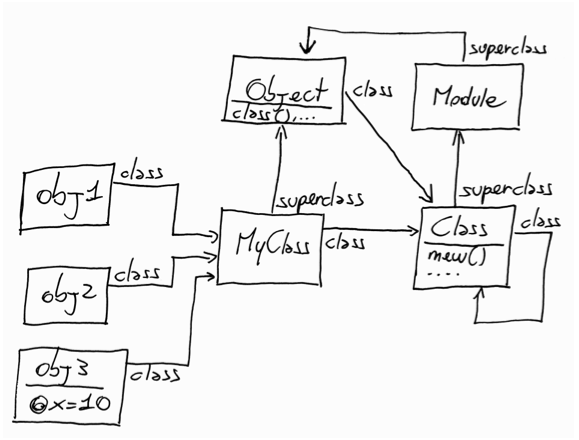 superclass
Object
class(),...
class
Module
class
obj1
superclass
superclass
MyClass
class
Class
new()
....
class
class
obj2
obj3
@x=10
class